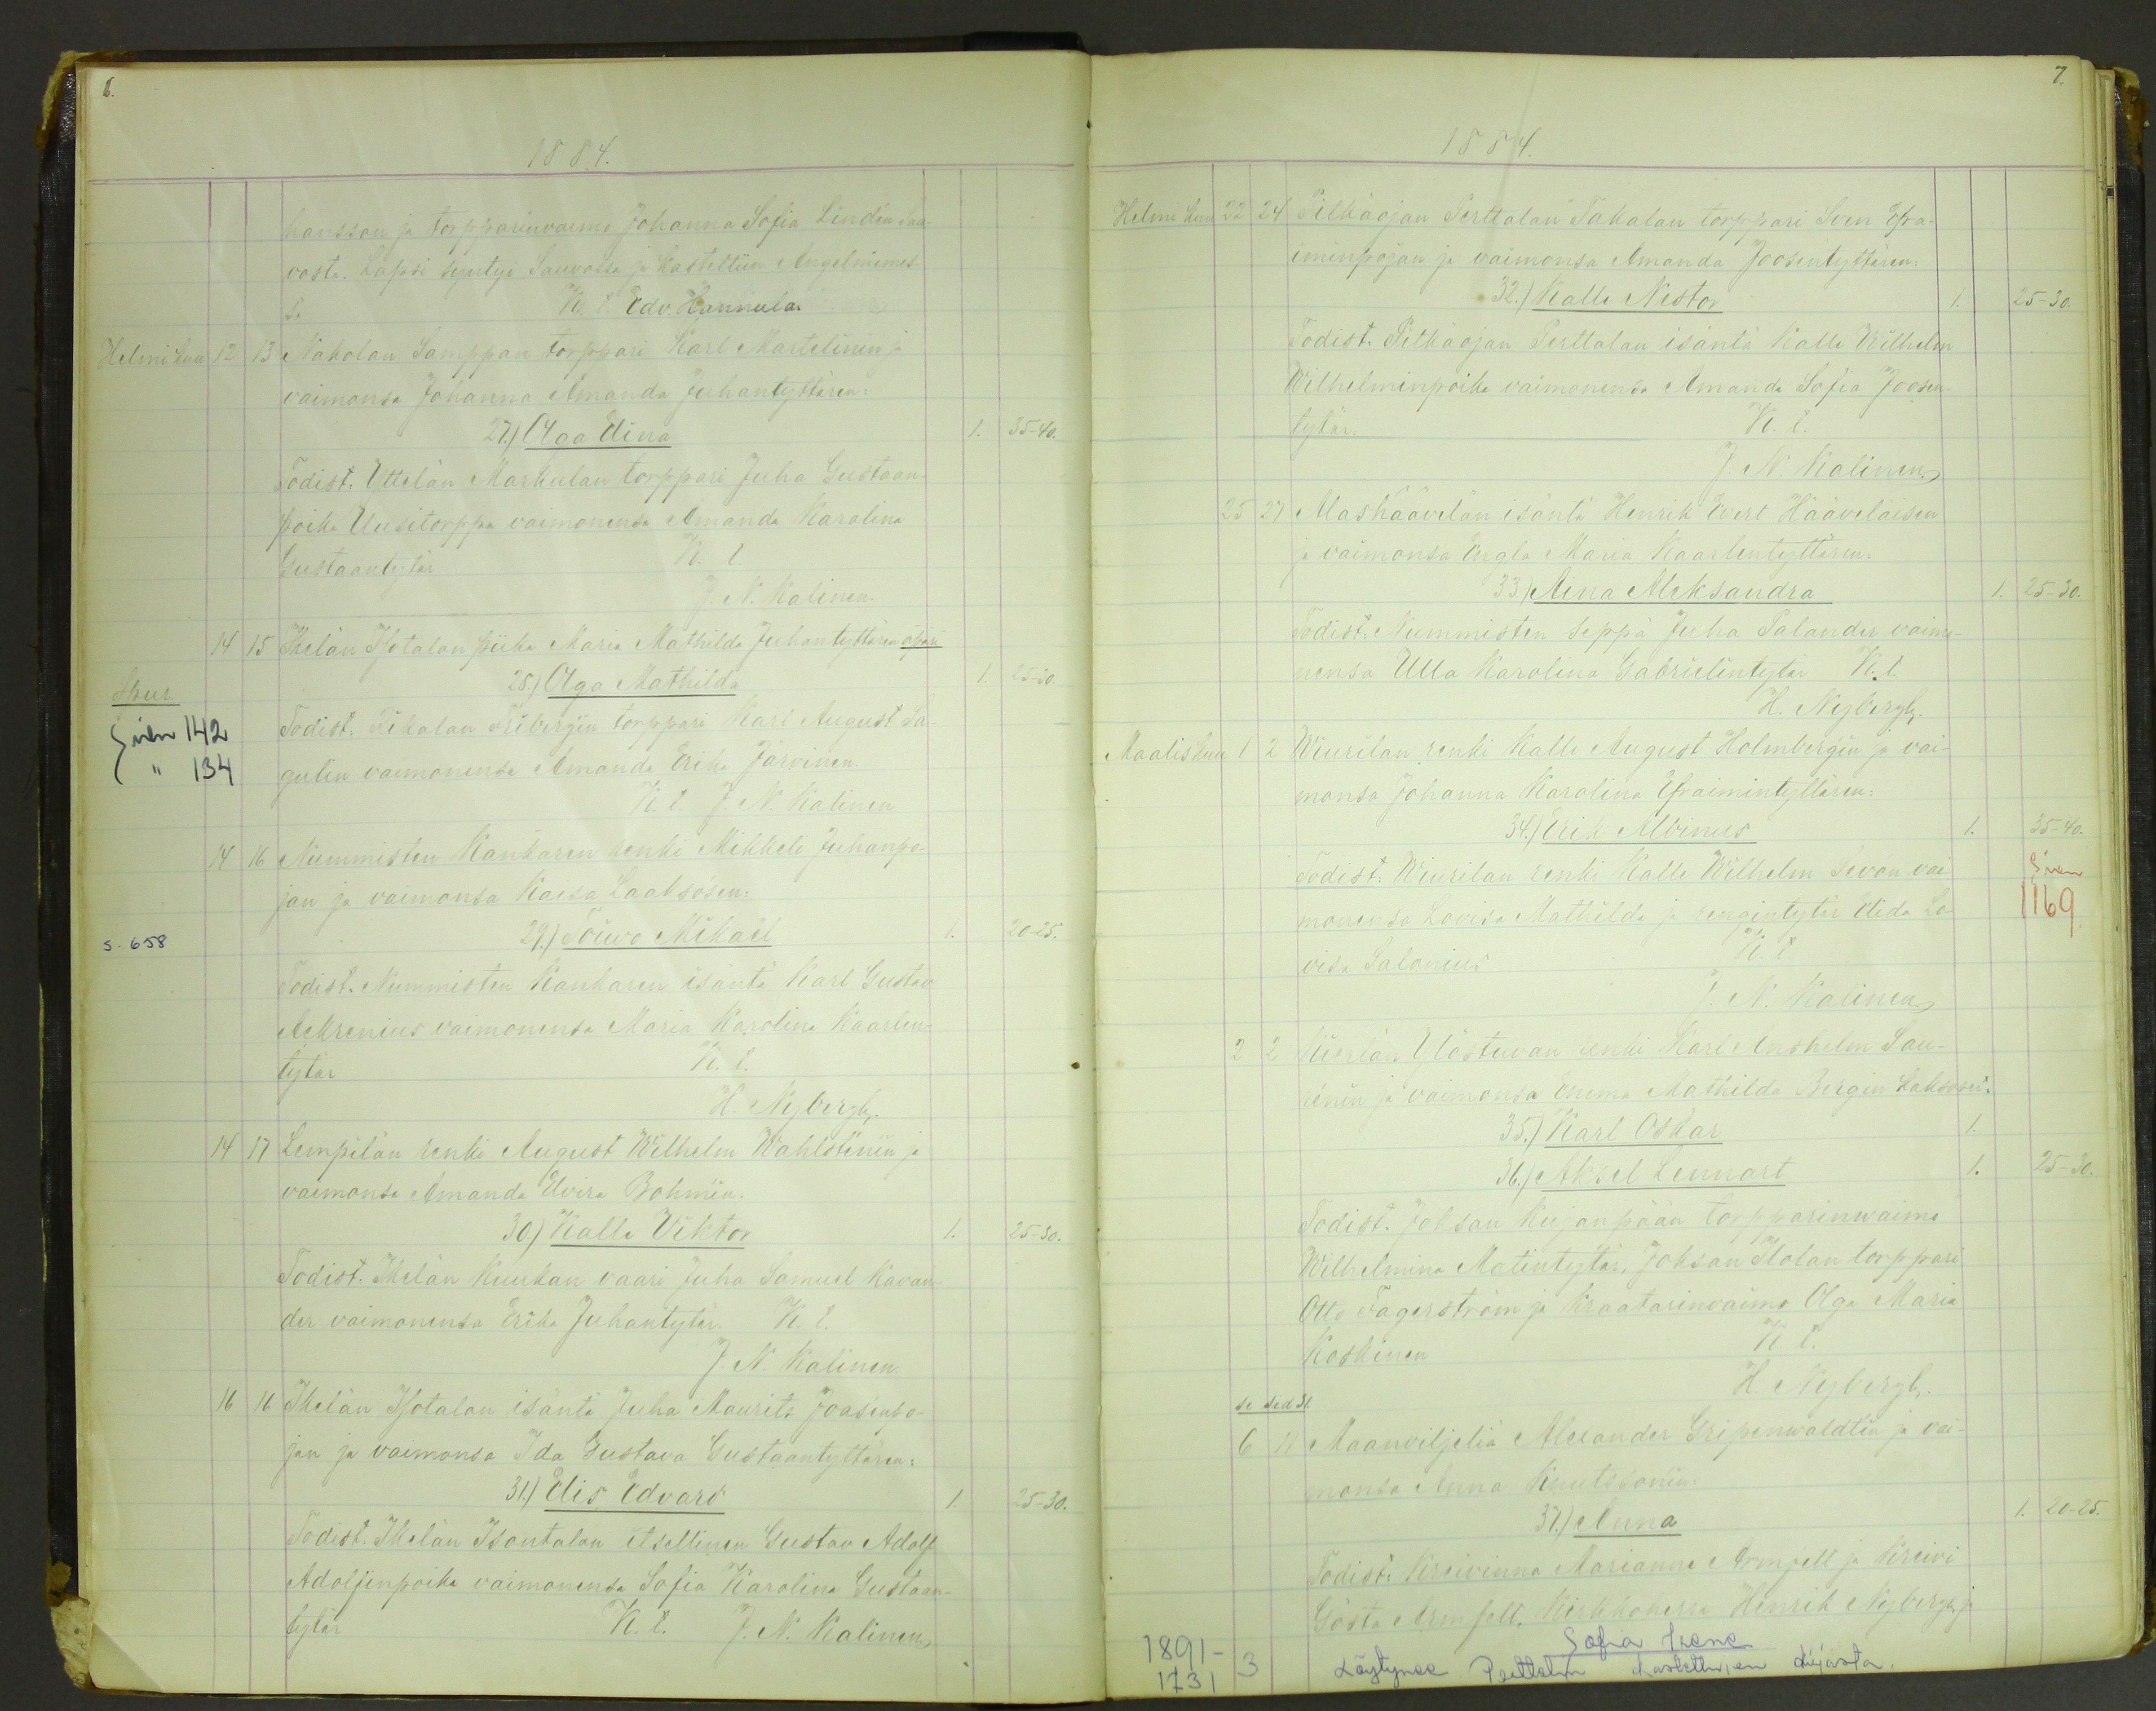 6.
1884.
hansson ja torpparinvaimo Johanna Sofia Lindén Sau-
vosta. Lapsi syntyi Sauvossa ja kastettiin Angelniemes-
sä K. t. Edv. Hannula.
Helmikuu 12 13 Nakolan Samppan torppari Karl Martelinin ja
vaimonsa Johanna Amanda Juhantyttären:
27.) Olga Elina 1. 35-40.
Todist. Uttelan Markulan torppari Juha Gustaan-
poika Uusitorppa vaimonensa Amanda Karolina
Gustaantytär K. t.
J. N. Kalinen.
14 15 Ihelän Isotalon piika Maria Mathilda Juhantyttären äpärä
28.) Olga Mathilda 1. 25-30.
Siren 142
" 134
Todist. Friberjin torppari Karl August Sa-
gulin vaimonensa Amanda Erika Järvinen.
K. t. J. N. Kalinen
14 16 Nummisten Kankaren renki Mikkeli Juhanpo-
jan ja vaimonsa Kaisa Laaksosen:
s. 658
29.) Toiwo Mikael 1. 20-25.
Todist. Nummisten Kankaren isäntä Karl Gustav
Ackrenius vaimonensa Maria Karolina Kaarlen-
tytär K. t.
H. Nybergh.
14 17 Lempilän renki August Wilhelm Wahlsténin ja
vaimonsa Amanda Elvira Bohmin.
30.) Kalle Viktor 1. 25-30.
Todist. Ihelän Kuukan vaari Juha Samuel Kavan-
der vaimonensa Erika Juhantytär K. t.
J. N. Kalinen.
16 16 Ihelän Isotalon isäntä Juha Maurits Joosenpo-
jan ja vaimonsa Ida Gustava Gustaantyttären:
31.) Elis Edvard 1. 25-30.
Todist. Ihelän Isontalon itsellinen Gustav Adolf
Adolfinpoika vaimonensa Sofia Karolina Gustaan-
tytär K. t. J. N. Kalinen
7.
1884.
Helmikuu 22 24 Pitkäojan Perttalan Takalan torppari Sven Efra-
iminpojan ja vaimonsa Amanda Joosentyttären:
32.) Kalle Nestor 1. 25-30.
Todist. Pitkäojan Perttalan isäntä Kalle Wilhelm
Wilhelminpoika vaimonensa Amanda Sofia Joosen-
tytär. K. t.
J. N. Kalinen
25 27 Alashäävelän isäntä Henrik Evert Hääveläisen
ja vaimonsa Engla Maria Kaarlentyttären.
33.) Aina Aleksandra 1. 25-30.
Todist. Nummisten seppä Juha Salander vaimo-
nensa Ulla Karolina Gabrielintytär K. t.
H. Nybergh.
Maaliskuu 1 2 Wiurilan renki Kalle August Holmbergin ja vai-
monsa Johanna Karolina Efraimintyttären:
34.) Erik Albinus 1. 35-40.
Siren
1169
Todist. Wiurilan renki Kalle Wilhelm Sevón vai
monensa Lovisa Mathilda ja rengintytär Elida Lo-
visa Salonius K. t.
J. N. Kalinen
2 2 Yöstuvan renki Karl Anshelm Sau-
ja vaimonsa Emma Mathilda Bergin kaksoset.
35.) Karl Oskar 1.
36.) Aksel Lennart 1. 25-30.
Todist. Joksan Kujanpään torpparinwaimo
Wilhelmina Matintytär, Joksan Ilolan torppari
Otto Fagerström ja kraatarinvaimo Olga Maria
Koskinen K. t.
H. Nybergh.
6 11 Maanviljeliä Alexander Gripenwaldtin ja vai-
monsa Anna Knutssonin:
37.) Anna 1. 20-25.
Todist. Kreivinna Marianne Armfelt ja Kreivi
Gösta Armfelt, Kirkkoherra Henrik Nybergh ja
1891-
1731 3 Sofia Irene
Löytynee Perttelin kastettujen kirjasta.